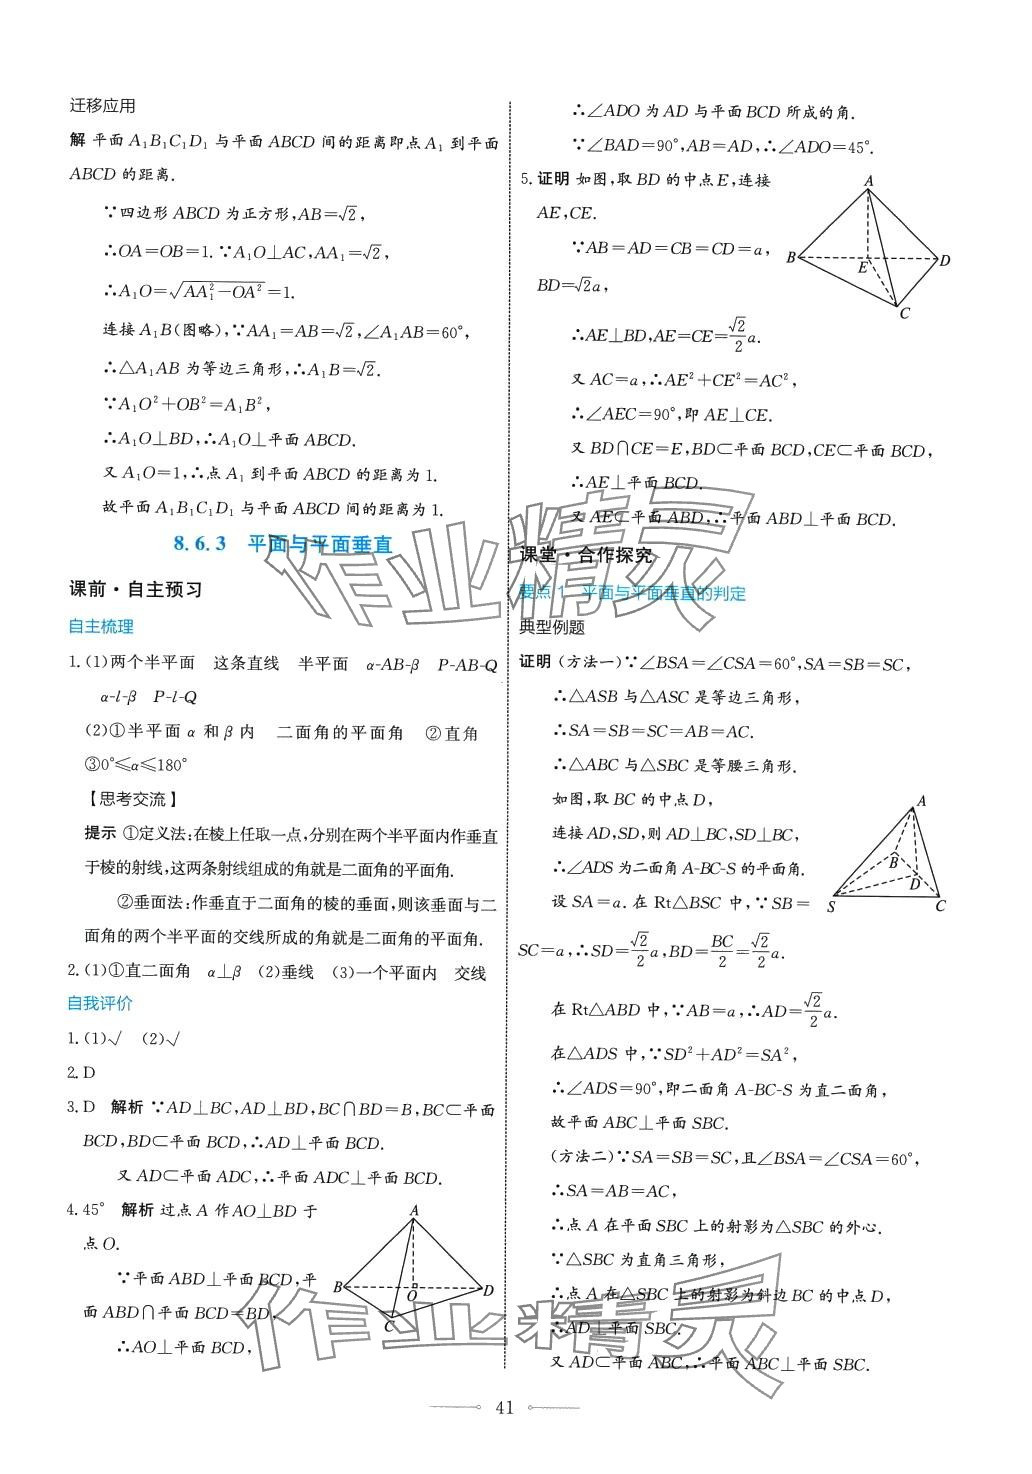 迁移应用
解 平面 A₁B₁C₁D₁ 与平面 ABCD 间的距离即点 A₁ 到平面
ABCD 的距离.
∵四边形 ABCD 为正方形,AB=√2,
∴OA=OB=1.∵A₁O⊥AC,AA₁=√2,
∴A₁O=√(AA₁²-OA²)=1.
连接 A₁B(图略),∵AA₁=AB=√2,∠A₁AB=60°,
∴△A₁AB 为等边三角形,∴A₁B=√2.
∵A₁O²+OB²=A₁B²,
∴A₁O⊥BD,∴A₁O⊥平面 ABCD.
又 A₁O=1,∴点 A₁ 到平面 ABCD 的距离为 1.
故平面 A₁B₁C₁D₁ 与平面 ABCD 间的距离为 1.
8.6.3 平面与平面垂直
课前·自主预习
自主梳理
1.(1)两个半平面 这条直线 半平面 α-AB-β P-AB-Q
α-l-β P-l-Q
(2)①半平面 α 和 β 内 二面角的平面角 ②直角
③0°≤α≤180°
【思考交流】
提示 ①定义法:在棱上任取一点,分别在两个半平面内作垂直
于棱的射线,这两条射线组成的角就是二面角的平面角.
②垂面法:作垂直于二面角的棱的垂面,则该垂面与二
面角的两个半平面的交线所成的角就是二面角的平面角.
2.(1)①直二面角 α⊥β (2)垂线 (3)一个平面内 交线
自我评价
1.(1)√ (2)√
2.D
3.D 解析 ∵AD⊥BC,AD⊥BD,BC∩BD=B,BC⊂平面
BCD,BD⊂平面 BCD,∴AD⊥平面 BCD.
又 AD⊂平面 ADC,∴平面 ADC⊥平面 BCD.
4.45° 解析 过点 A 作 AO⊥BD 于
点 O.
∵平面 ABD⊥平面 BCD,平
面 ABD∩平面 BCD=BD,
∴AO⊥平面 BCD,
A
B
O
D
C
∴∠ADO 为 AD 与平面 BCD 所成的角.
∵∠BAD=90°,AB=AD,∴∠ADO=45°.
5.证明 如图,取 BD 的中点 E,连接
AE,CE.
∵AB=AD=CB=CD=a,
BD=√2a,
∴AE⊥BD,AE=CE=√2/2a.
又 AC=a,∴AE²+CE²=AC²,
∴∠AEC=90°,即 AE⊥CE.
又 BD∩CE=E,BD⊂平面 BCD,CE⊂平面 BCD,
∴AE⊥平面 BCD.
又 AE⊂平面 ABD,∴平面 ABD⊥平面 BCD.
A
B
E
D
C
课堂·合作探究
要点 1 平面与平面垂直的判定
典型例题
证明 (方法一)∵∠BSA=∠CSA=60°,SA=SB=SC,
∴△ASB 与△ASC 是等边三角形,
∴SA=SB=SC=AB=AC.
∴△ABC 与△SBC 是等腰三角形.
如图,取 BC 的中点 D,
连接 AD,SD,则 AD⊥BC,SD⊥BC,
∴∠ADS 为二面角 A-BC-S 的平面角.
设 SA=a.在 Rt△BSC 中,∵SB=
SC=a,∴SD=√2/2a,BD=BC/2=√2/2a.
A
B
D
S
C
在 Rt△ABD 中,∵AB=a,∴AD=√2/2a.
在△ADS 中,∵SD²+AD²=SA²,
∴∠ADS=90°,即二面角 A-BC-S 为直二面角,
故平面 ABC⊥平面 SBC.
(方法二)∵SA=SB=SC,且∠BSA=∠CSA=60°,
∴SA=AB=AC,
∴点 A 在平面 SBC 上的射影为△SBC 的外心.
∵△SBC 为直角三角形,
∴点 A 在△SBC 上的射影为斜边 BC 的中点 D,
∴AD⊥平面 SBC.
又 AD⊂平面 ABC,∴平面 ABC⊥平面 SBC.
41
作业精灵
作业精灵